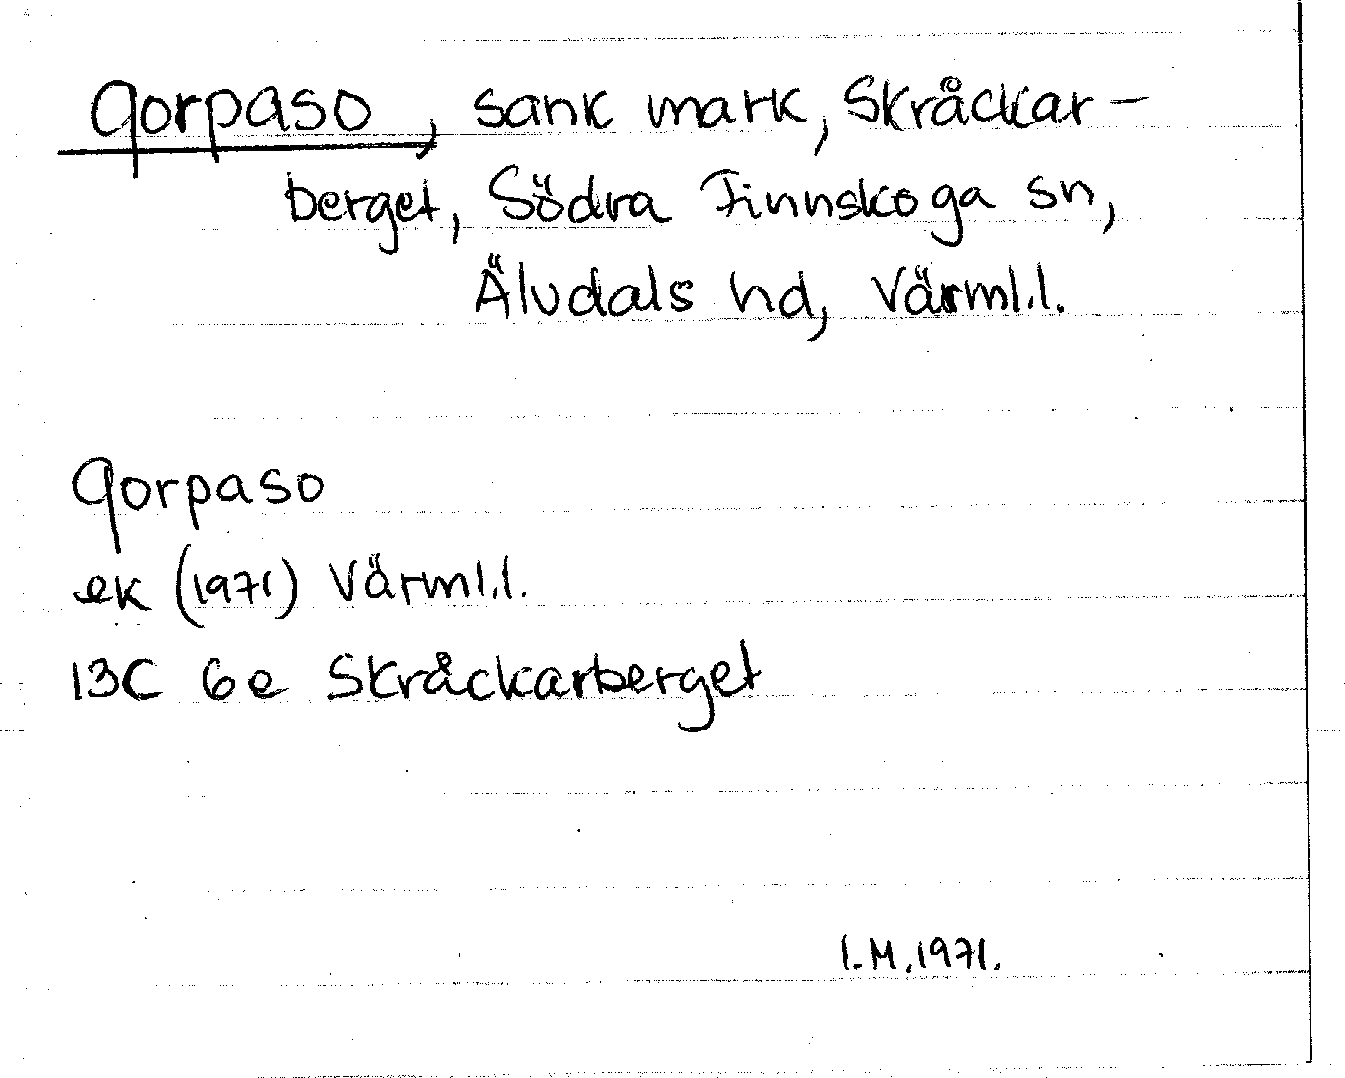 qorpaso, sank mark, Skråckar-
berget, Södra Finnskoga sn,
Älvdals hd, Värml.l.
qorpaso
ek (1971) Värml.l.
13C 6e Skråckarberget
I.M.1971.